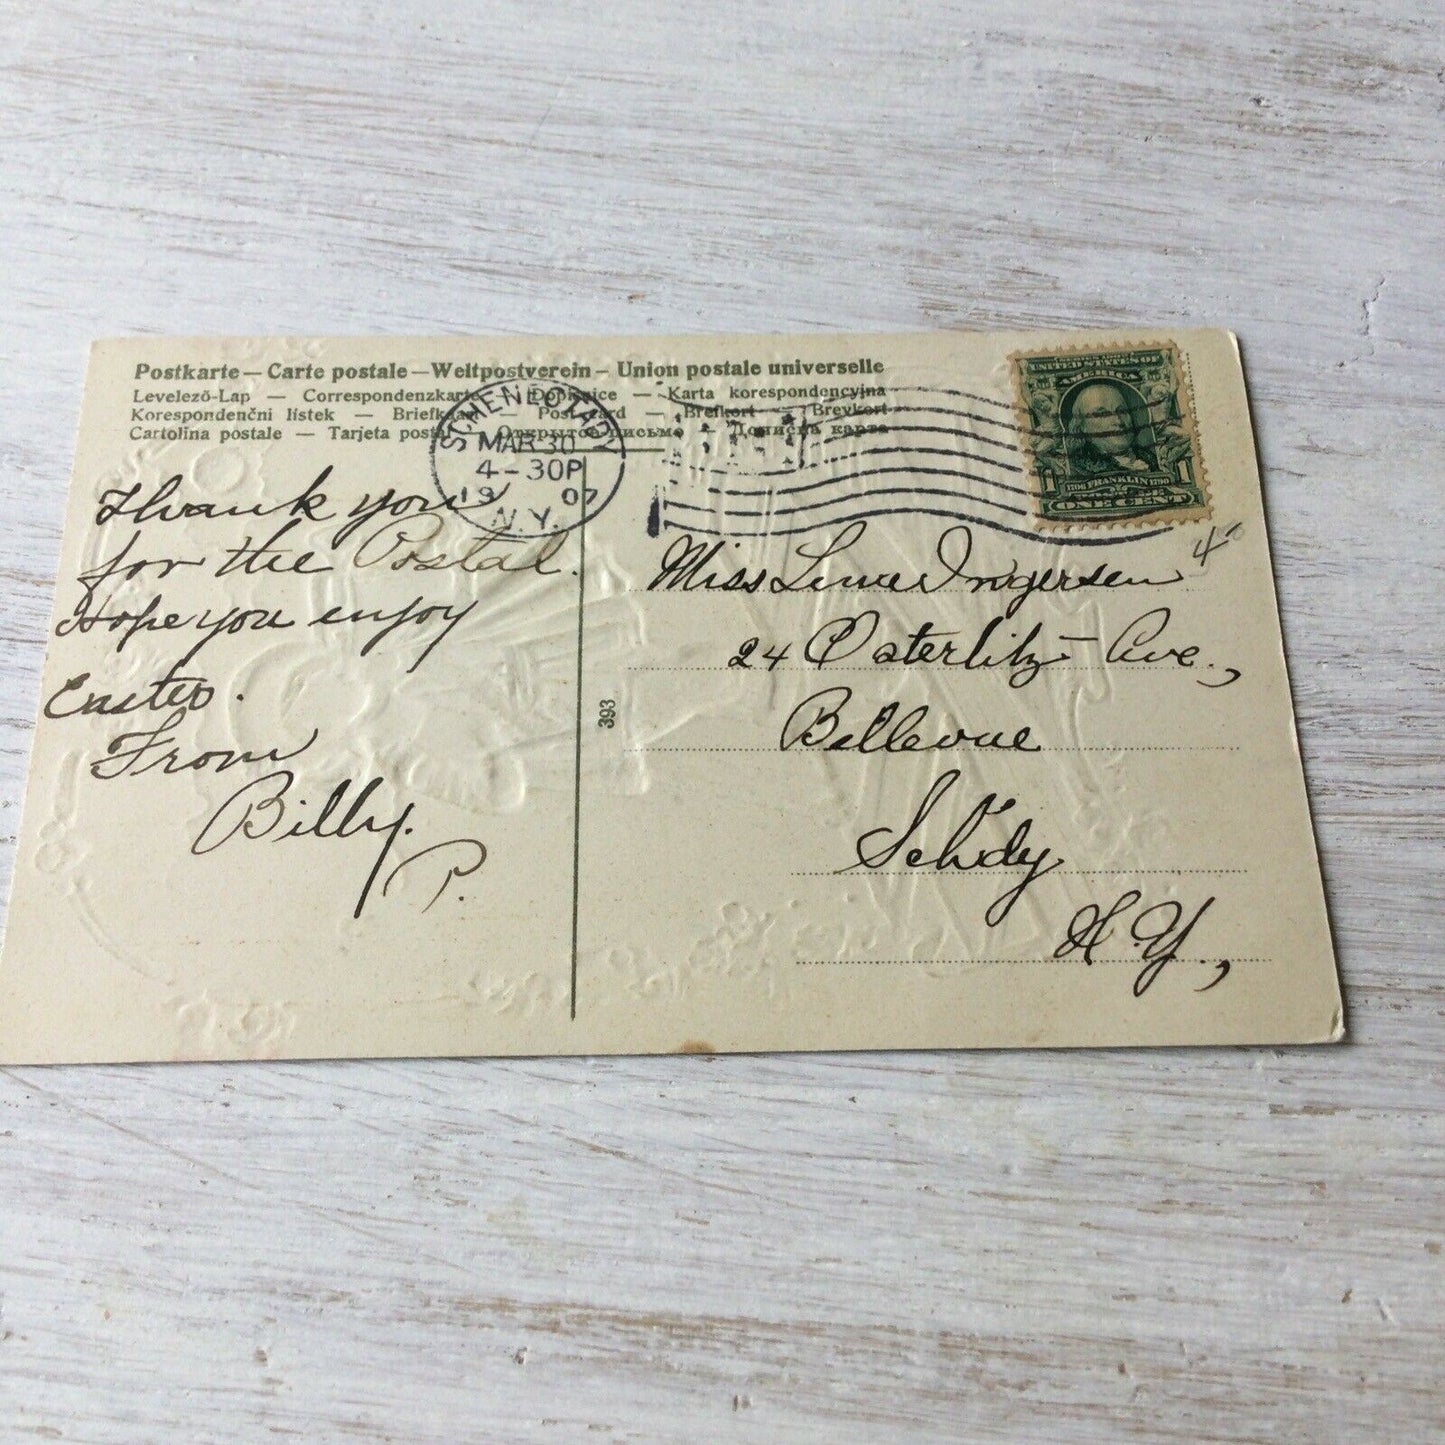 Postkarte — Carte postale — Weltpostverein — Union postale universelle
Levelező-Lap — Correspondenzkarte — — Karta korespondencyjna
Korespondenční lístek — Briefkaart — Post card — Brefkort — Brevkort
Cartolina postale — Tarjeta postal — Открытое письмо — Дописна карта
SCHENECTADY
MAR 30
4-30P
1907
N.Y.
UNITED STATES OF
AMERICA
1 1706 FRANKLIN 1790 1
ONE CENT
4
Thank you
for the Postal.
Hope you enjoy
Easter.
From
Billy.
P.
393
Miss Ingersen
24 Ave.,
Bellevue
Sch'dy
N.Y.,